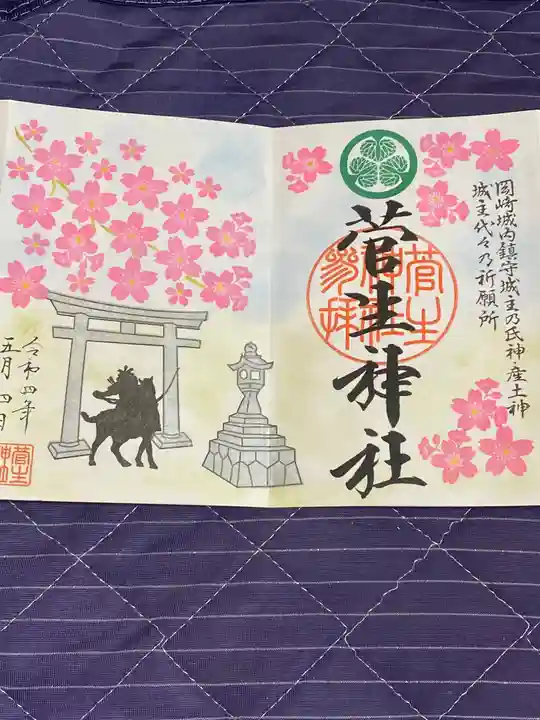 岡崎城内鎮守城主乃氏神産土神
城主代々乃祈願所
菅生神社
菅生
神社
参拝
令和四年
五月四日
菅生
神社